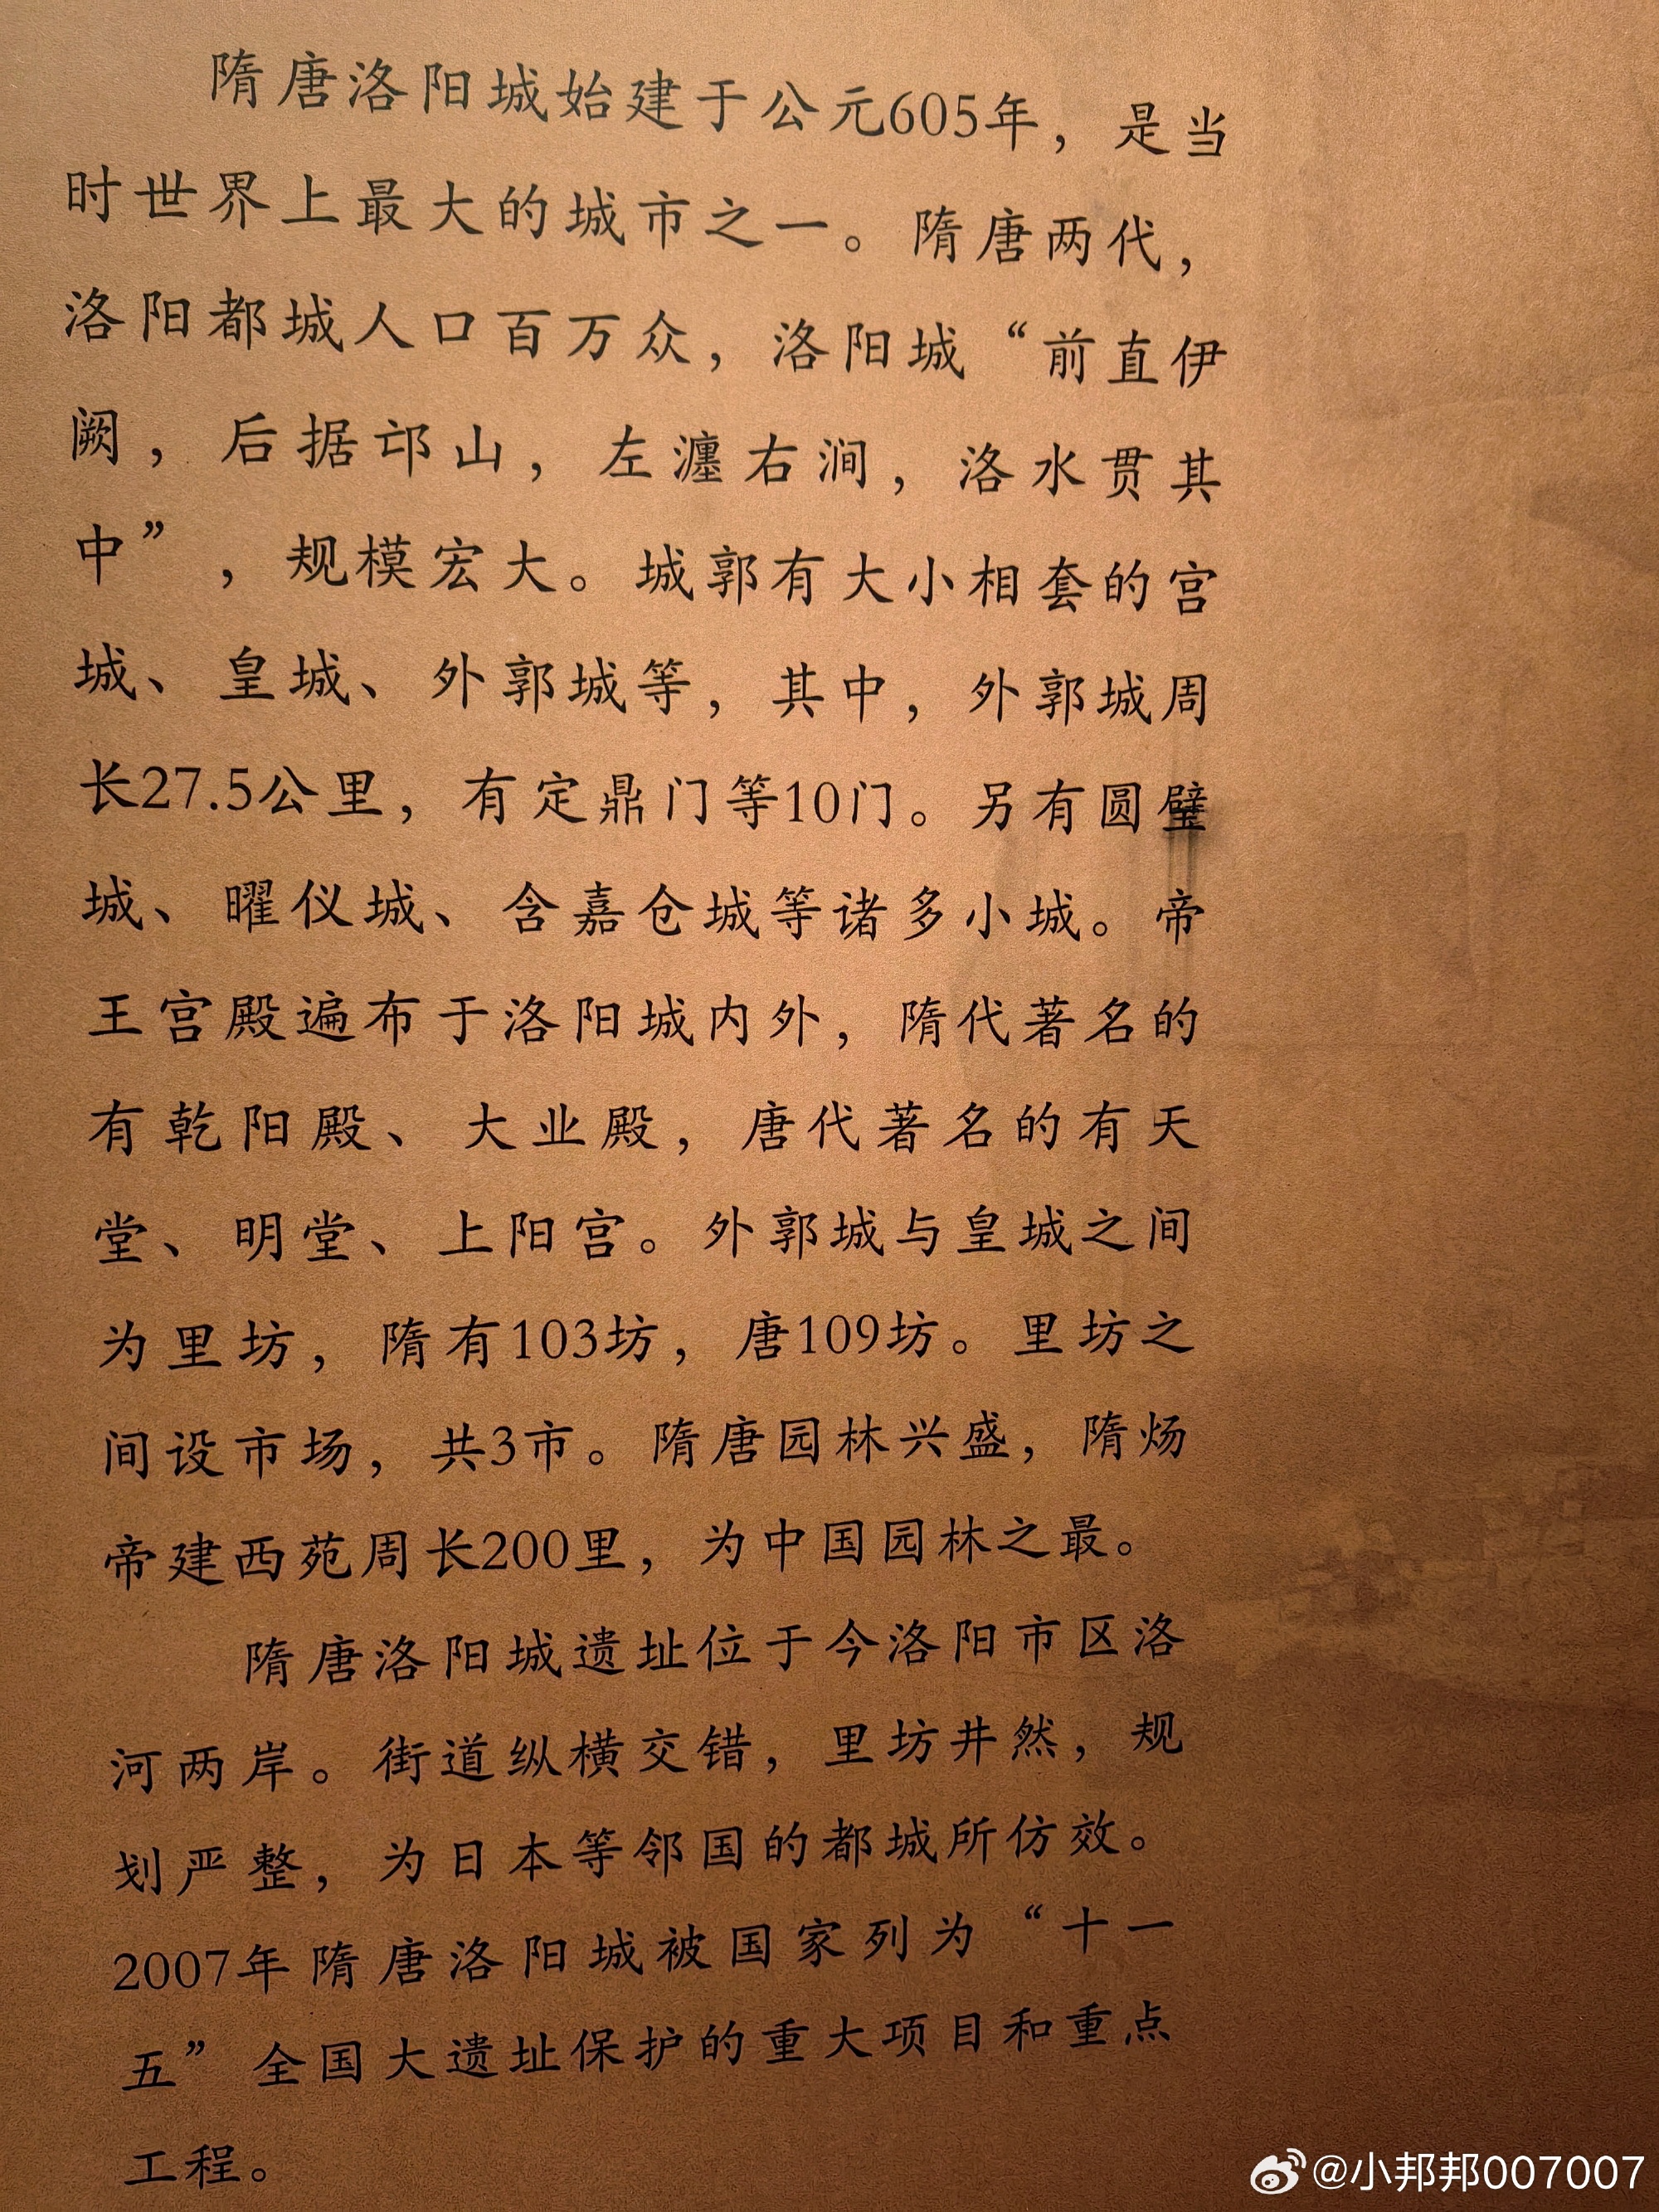 隋唐洛阳城始建于公元605年，是当
时世界上最大的城市之一。隋唐两代，
洛阳都城人口百万众，洛阳城“前直伊
阙，后据邙山，左瀍右涧，洛水贯其
中”，规模宏大。城郭有大小相套的宫
城、皇城、外郭城等，其中，外郭城周
长27.5公里，有定鼎门等10门。另有圆璧
城、曜仪城、含嘉仓城等诸多小城。帝
王宫殿遍布于洛阳城内外，隋代著名的
有乾阳殿、大业殿，唐代著名的有天
堂、明堂、上阳宫。外郭城与皇城之间
为里坊，隋有103坊，唐109坊。里坊之
间设市场，共3市。隋唐园林兴盛，隋炀
帝建西苑周长200里，为中国园林之最。
隋唐洛阳城遗址位于今洛阳市区洛
河两岸。街道纵横交错，里坊井然，规
划严整，为日本等邻国的都城所仿效。
2007年隋唐洛阳城被国家列为“十一
五”全国大遗址保护的重大项目和重点
工程。
@小邦邦007007